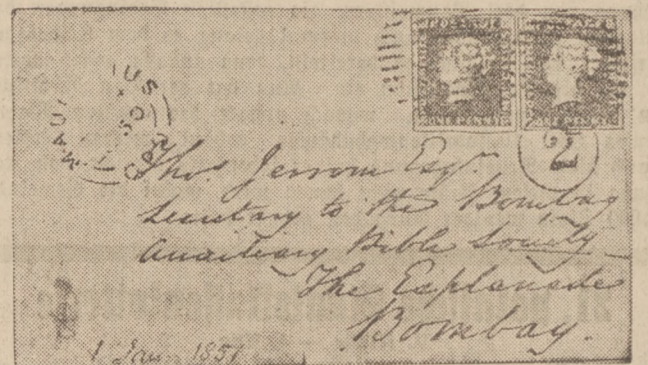 POST OFFICE
ONE PENNY
2
Thos. Jerrom Esqr.
Secretary to the Bombay
Auxiliary Bible Society
The Esplanade
Bombay.
1 Jan. 1850